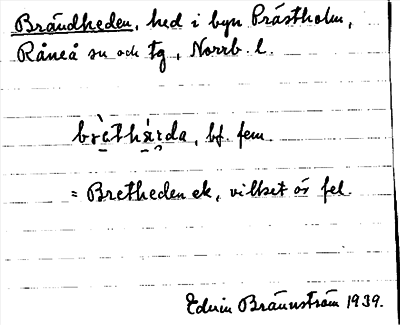 Brändheden, hed i byn Prästholm,
Råneå sn och tg, Norrb. l.
brà̤thä́rda, bf. fem.
= Bretheden ek, vilket är fel.
Edvin Brännström 1939.